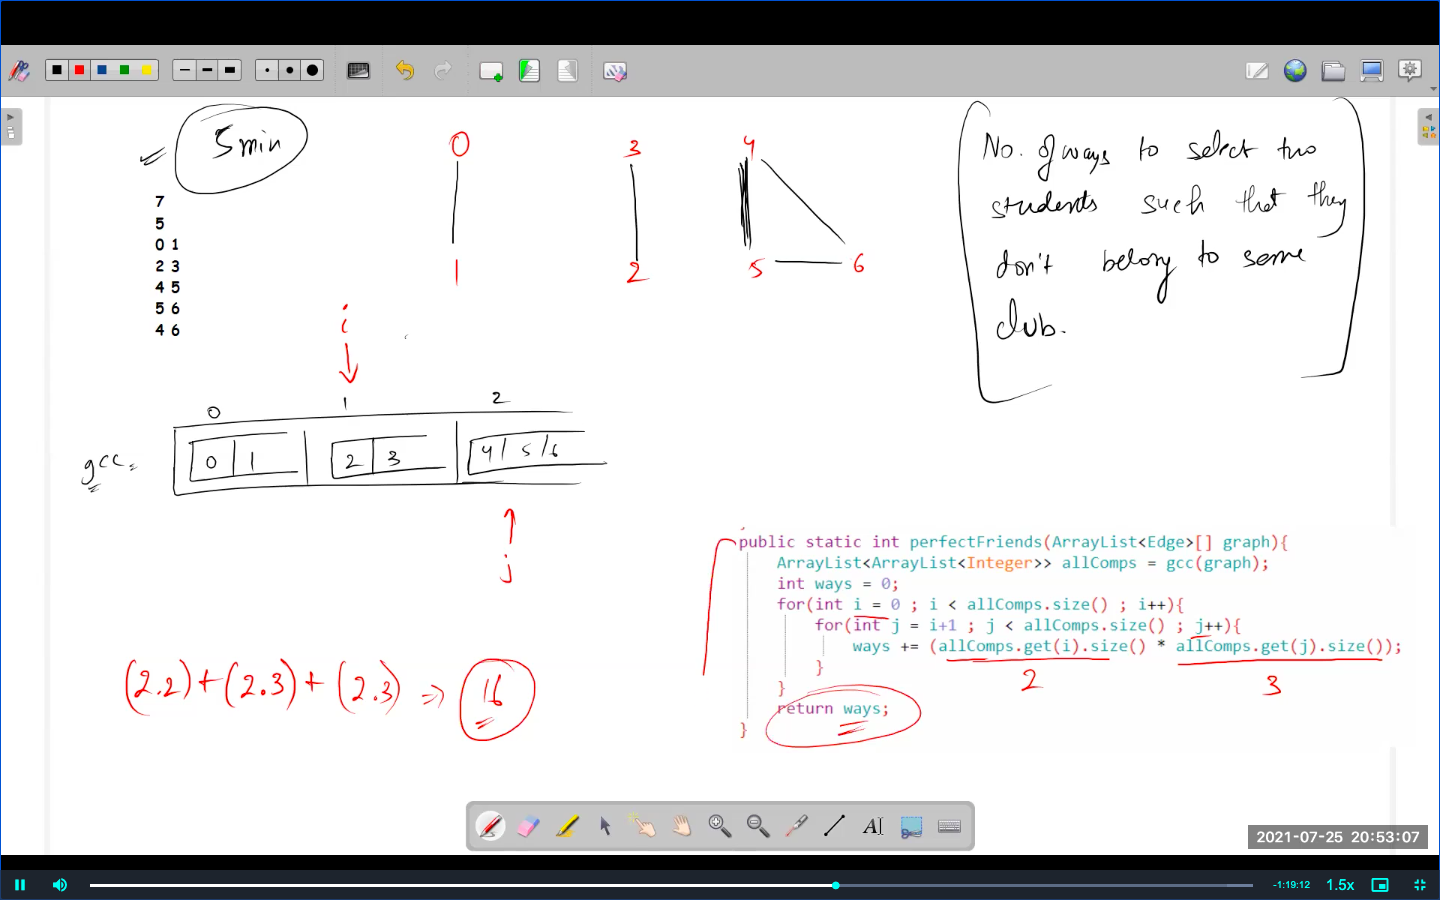 5 min
7
5
0 1
2 3
4 5
5 6
4 6
0
1
3
2
4
5
6
No. of ways to select two
students such that they
don't belong to same
club.
i
0 1 2
gcc =
0 1 2 3 4 5 6
j
public static int perfectFriends(ArrayList<Edge>[] graph){
ArrayList<ArrayList<Integer>> allComps = gcc(graph);
int ways = 0;
for(int i = 0 ; i < allComps.size() ; i++){
for(int j = i+1 ; j < allComps.size() ; j++){
ways += (allComps.get(i).size() * allComps.get(j).size());
}
2 3
}
return ways;
}
(2.2)+(2.3)+(2.3) => 16
AI
2021-07-25 20:53:07
-1:19:12 1.5x